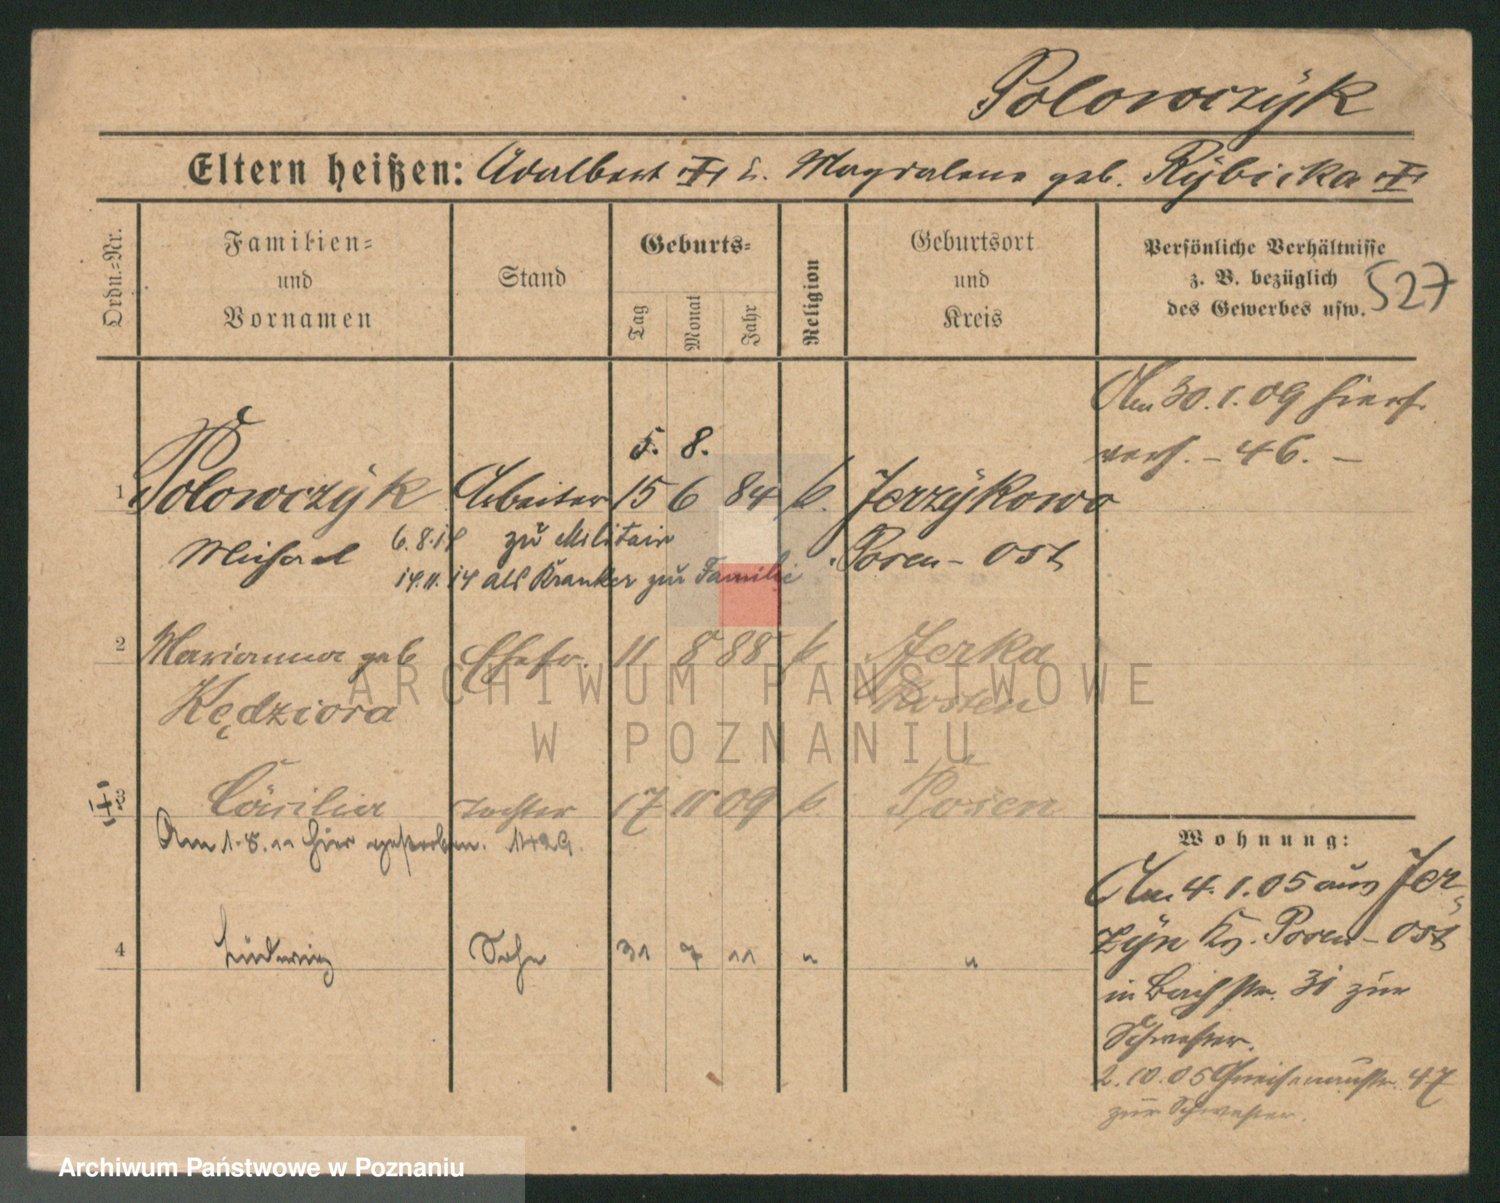 Polowczÿk
Eltern heißen: Adalbert u. Magdalena geb. Rÿbicka
Ordn.-Nr.
Familien-
und
Vornamen
Stand
Geburts-
Tag
Monat
Jahr
Religion
Geburtsort
und
Kreis
Persönliche Verhältnisse
z. B. bezüglich
des Gewerbes usw.
527
Am 30.1.09 hierf.
verh. – 46. –
5. 8.
1 Polowczÿk Arbeiter 15 6 84 k. Jerzÿkowo
Michael 6.8.14 zu Militair Posen-Ost
14.11.14 als Kranker zur Familie
2 Marianna geb Ehefr. 11 8 88 k Jerka
Kędziora Kosten
3 Cäcilia Tochter 17 11 09 k. Posen
Am 1.8.11 hier gestorben. 1429.
4 Ludwig Sohn 31 7 11 " "
Wohnung:
Am 4.1.05 aus Jer-
zÿn Kr. Posen-Ost
in Bachstr. 31 zur
Schwester.
2.10.05 Gneisenaustr. 47
zur Schwester.
ARCHIWUM PAŃSTWOWE
W POZNANIU
Archiwum Państwowe w Poznaniu